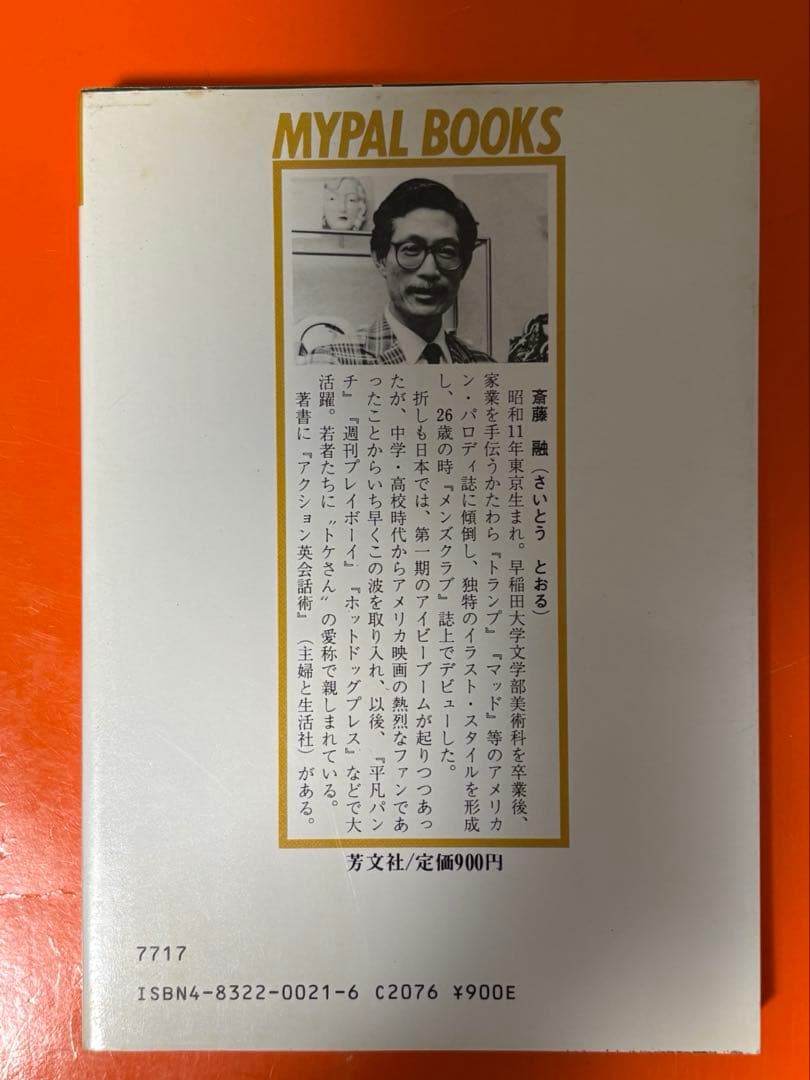 MYPAL BOOKS
斎藤 融(さいとう とおる)
昭和11年東京生まれ。早稲田大学文学部美術科を卒業後、
家業を手伝うかたわら『トランプ』『マッド』等のアメリカ
ン・パロディ誌に傾倒し、独特のイラスト・スタイルを形成
し、26歳の時『メンズクラブ』誌上でデビューした。
折しも日本では、第一期のアイビーブームが起りつつあっ
たが、中学・高校時代からアメリカ映画の熱烈なファンであ
ったことからいち早くこの波を取り入れ、以後、『平凡パン
チ』『週刊プレイボーイ』『ホットドッグプレス』などで大
活躍。若者たちに〝トケさん〟の愛称で親しまれている。
著書に『アクション英会話術』(主婦と生活社)がある。
芳文社/定価900円
7717
ISBN4-8322-0021-6 C2076 ¥900E